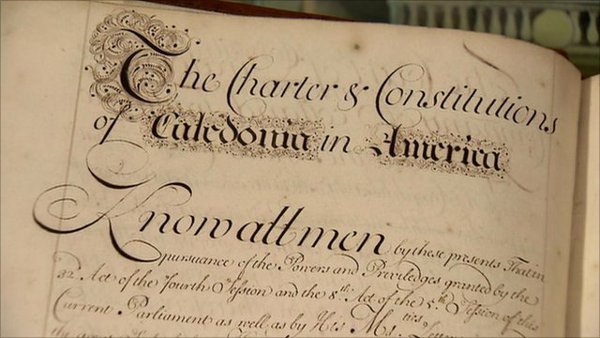 The Charter & Constitutions
of Caledonia in America
Know all men by these presents That in
pursuance of the Powers and Priviledges granted by the
32 Act of the Fourth Session and the 8th Act of the 5th Session of this
Current Parliament as well as by His Maties